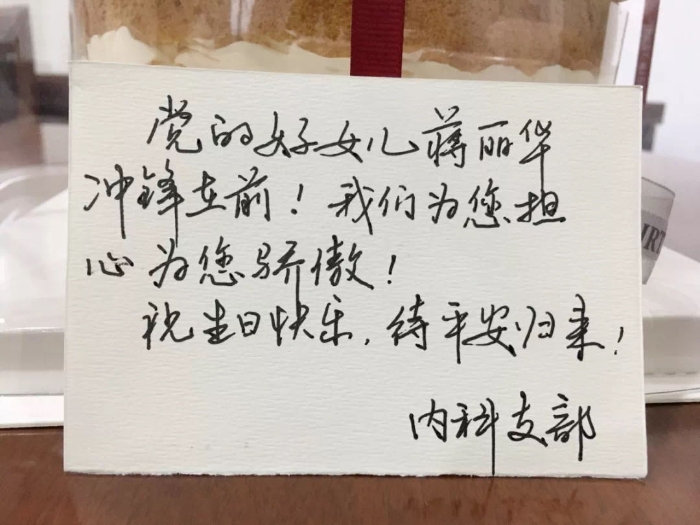 党的好女儿蒋丽华
冲锋在前！我们为您担
心为您骄傲！
祝生日快乐，待平安归来！
内科支部